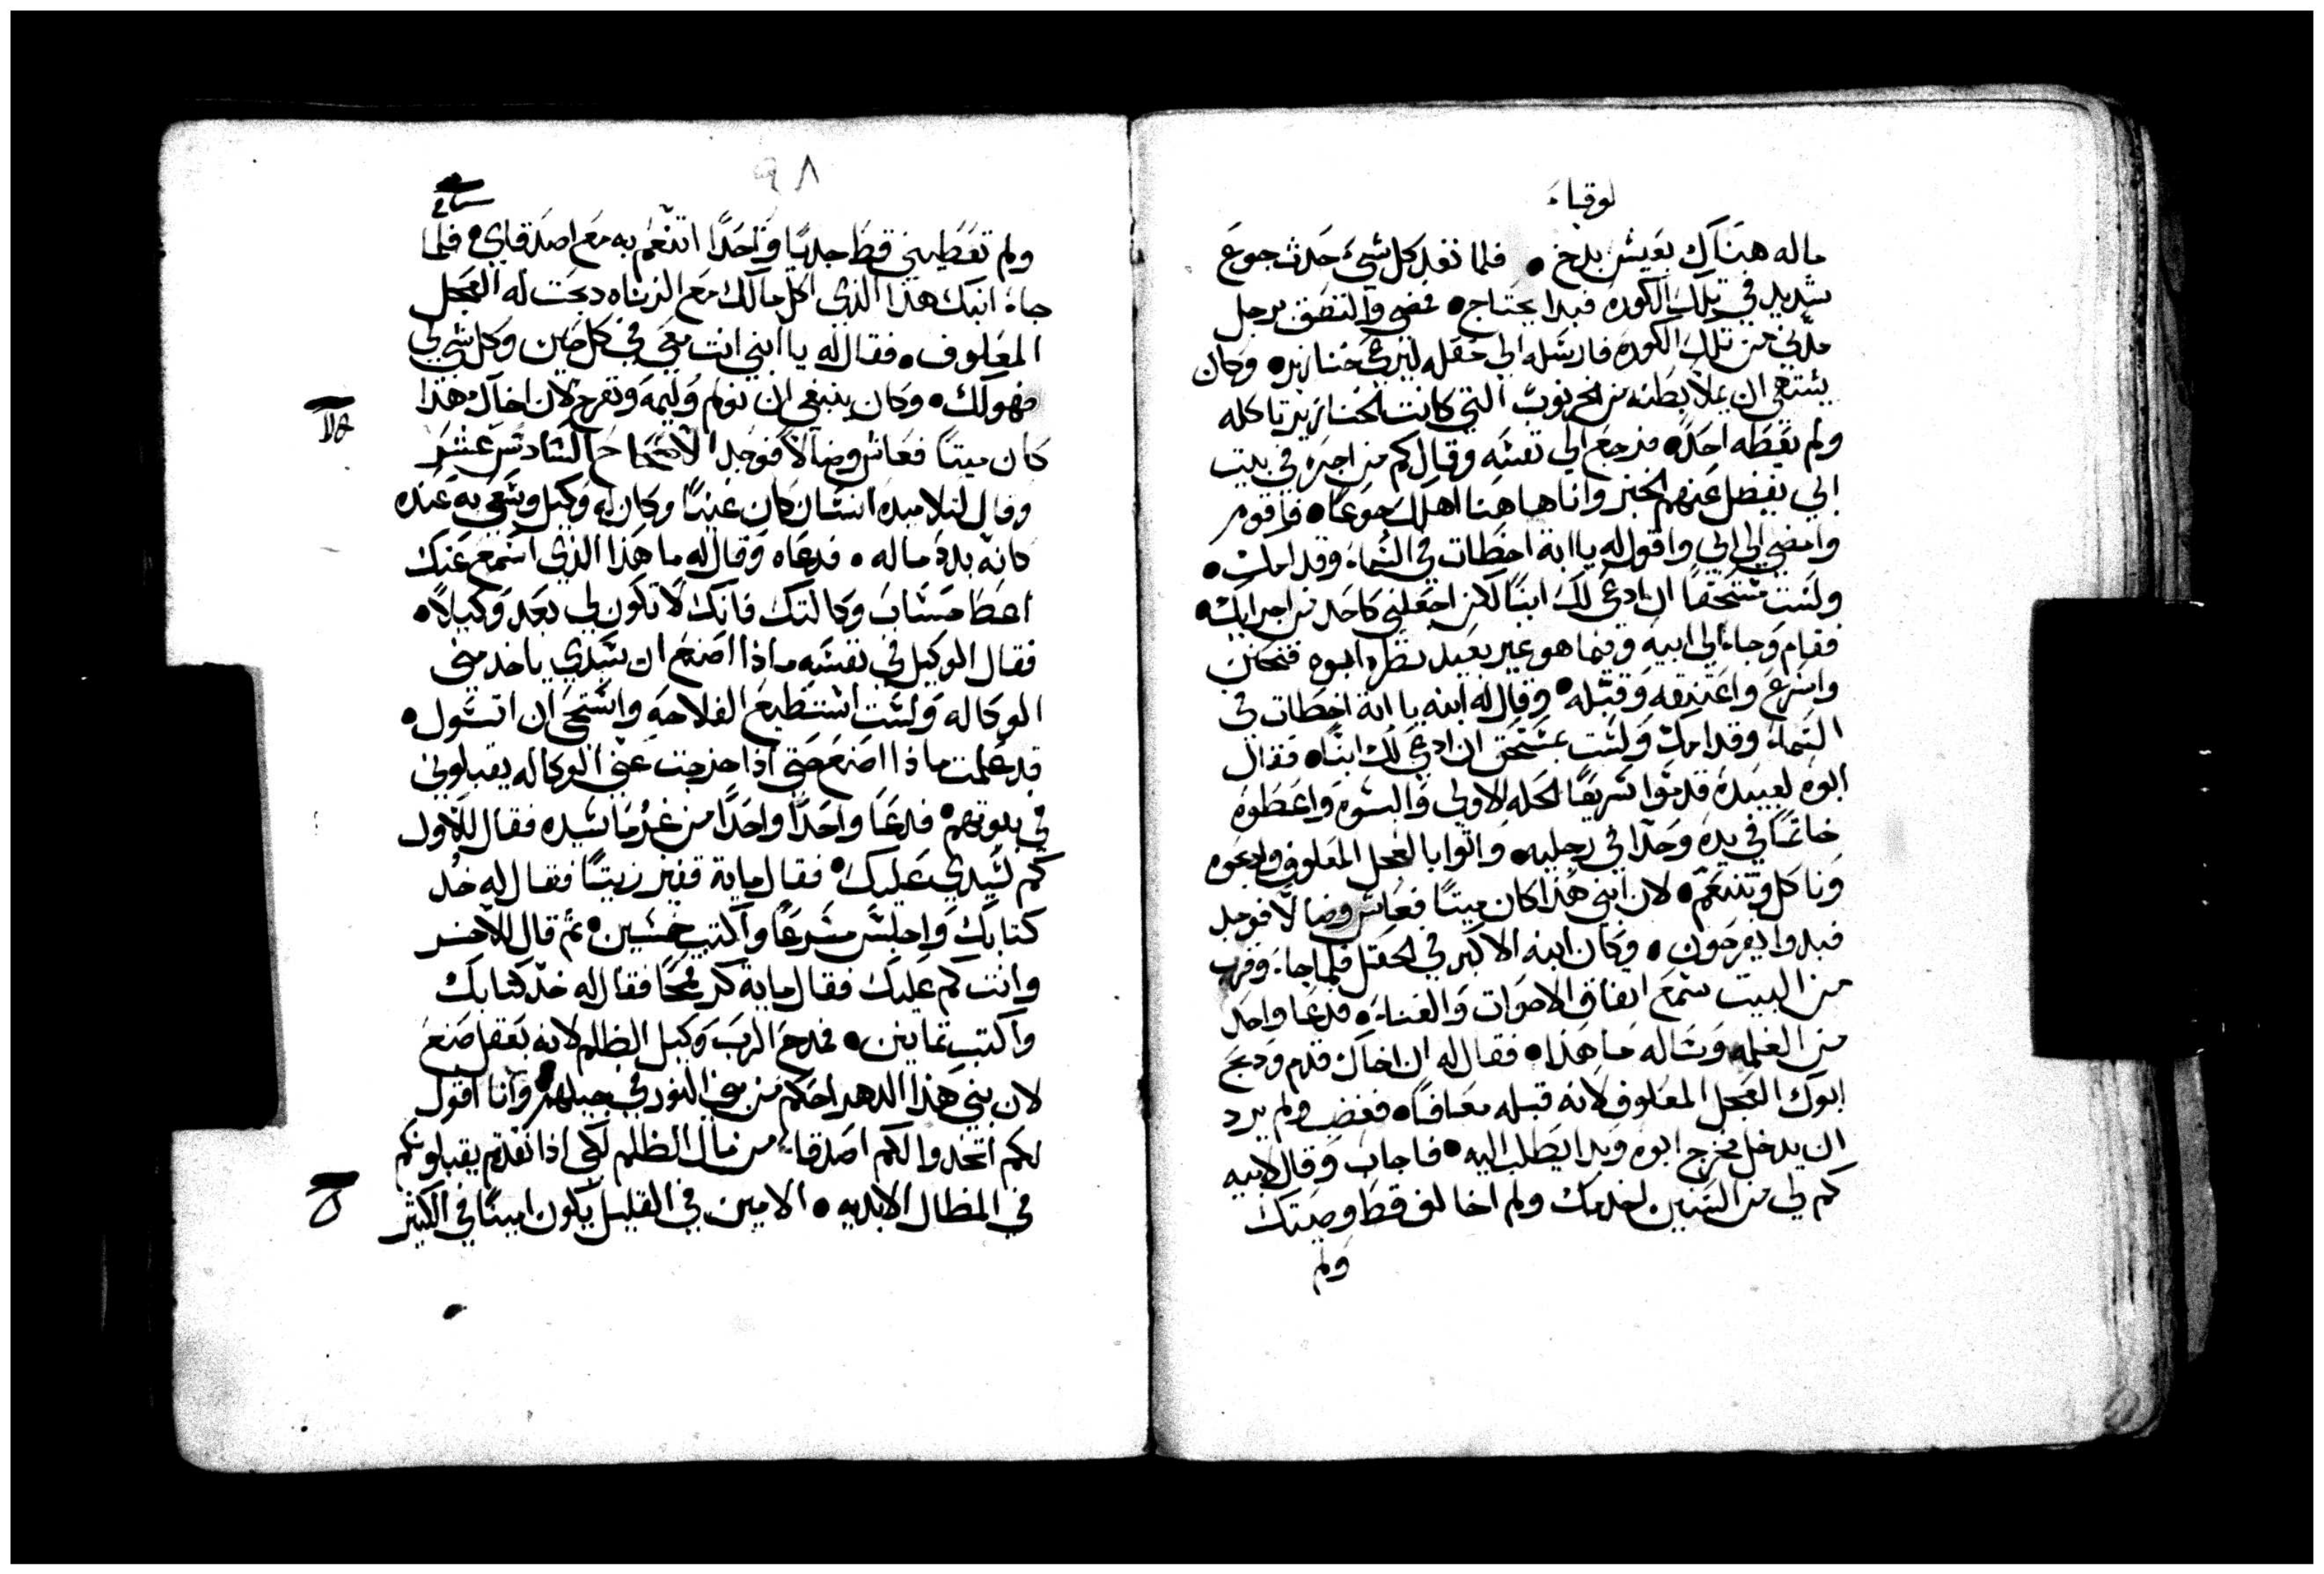 لوقا
ماله هناك بعيش بدخ • فلما نفد كل شيء حدث جوع
شديد في تلك الكوره فبدا يحتاج • فمضي والتصق برجل
مدني من تلك الكوره فارسله الي حقله ليرعي خنازير • وكان
يشتهي ان يملا بطنه من الخرنوب التي كانت الخنازير تاكله
ولم يعطه احد • فرجع الي نفسه وقال كم من اجره في بيت
ابي يفضل عنهم الخبز وانا هاهنا اهلك جوعا • فاقوم
وامضي الي ابي واقول له يا ابة اخطات في السماء وقدامك •
ولست مستحقا ان ادعي لك ابنا لكن اجعلني كاحد من اجرايك •
فقام وجاء الي ابيه وفيما هو غير بعيد نظره ابوه فتحنن
واسرع واعتنقه وقبله • وقال له ابنه يا ابة اخطات في
السماء وقدامك ولست بمستحق ان ادعي لك ابنا • فقال
ابوه لعبيده قدموا سريعا الحله الاولي والبسوه واعطوه
خاتما في يده وحدا في رجليه • واتوا بالعجل المعلوف وادبحوه
وناكل ونتنعم • لان ابني هذا كان ميتا فعاش وضالا فوجد
فبدوا يفرحون • وكان ابنه الاكبر في الحقل فلما جاء وقرب
من البيت سمع اتفاق الاصوات والغناء • فدعا واحد
من الغلمه وساله ما هذا • فقال له ان اخاك قدم ودبح
ابوك العجل المعلوف لانه قبله معافا • فغضب ولم يرد
ان يدخل فخرج ابوه وبدا يطلب اليه • فاجاب وقال لابيه
كم لي من السنين اخدمك ولم اخالف قط وصيتك
ولم
٩٨
ولم تعطيني قط جديا واحدا اتنعم به مع اصدقاي • فلما
جاء ابنك هذا الذي اكل مالك مع الزناه دبحت له العجل
المعلوف • فقال له يا ابني انت معي في كل حين وكل شي لي
فهو لك • وكان ينبغي ان نولم وليمه ونفرح لان اخاك هذا
كان ميتا فعاش وضالا فوجد الاصحاح السادس عشر
وقال لتلاميده انسان كان غنيا وكان له وكيل وشعي به عنده
كانه بدد ماله • فدعاه وقال له ما هذا الذي اسمع عنك
اعط حساب وكالتك فانك لا تكون لي بعد وكيلا •
فقال الوكيل في نفسه ماذا اصنع ان سيدي ياخد مني
الوكاله ولست استطيع الفلاحه واستحي ان اتسول •
قد علمت ماذا اصنع حتي اذا خرجت عني الوكاله يقبلوني
في بيوتهم • فدعا واحدا واحدا من غرما سيده فقال للاول
كم لسيدي عليك • فقال ماية قفيز زيتا فقال له خد
كتابك واجلس مسرعا واكتب خمسين • ثم قال للاخر
وانت كم عليك فقال ماية كر قمحا فقال له خد كتابك
واكتب تمانين • فمدح الرب وكيل الظلم لانه بعقل صنع
لان بني هذا الدهر احكم من بني النور في جيلهم وانا اقول
لكم اتخدوا لكم اصدقاء من مال الظلم لكي اذا نفدتم يقبلونكم
في المظال الابديه • الامين في القليل يكون امينا في الكتير